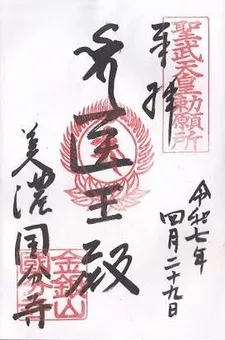 聖武天皇勅願所
奉拝
令和七年
四月二十九日
医王殿
美濃国分寺
金銀山
国分寺